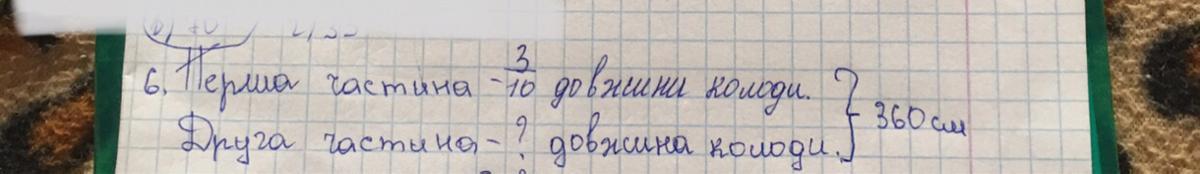 6. Перша частина - 3/10 довжини колоди. } 360 см
Друга частина - ? довжина колоди.